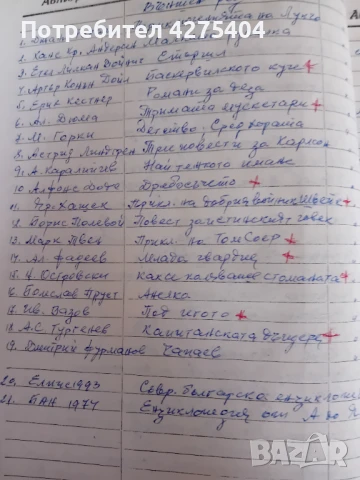 Потребител 4275404
3. Етел Лилиан Войнич Стършел
4. Артер Конан Дойл Баскервилското куче +
5. Ерих Кестнер Романи за деца
6. Ал. Дюма Тримата мускетари +
7. М. Горки Детство, Сред хората
8. Астрид Линдгрен Три повести за Карлсон
9. А. Каралийчев Най тежкото имане
10. Алфонс Доде Дребосъчето +
11. Яр. Хашек Прикл. на добрия войник Швейк +
12. Борис Полевой Повест за истинския човек
13. Марк Твен Прикл. на Том Соер +
14. Ал. Фадеев Млада гвардия +
15. Н. Островски Как се каляваше стоманата +
16. Болеслав Прус Анелка
17. Ив. Вазов Под игото +
18. А.С. Тургенев Капитанската дъщеря +
19. Димитрий Фурманов Чапаев
20. Елпис 1993 Севр. българска енцикло
21. БАН 1974 Енциклопедия от А до Я
bazar